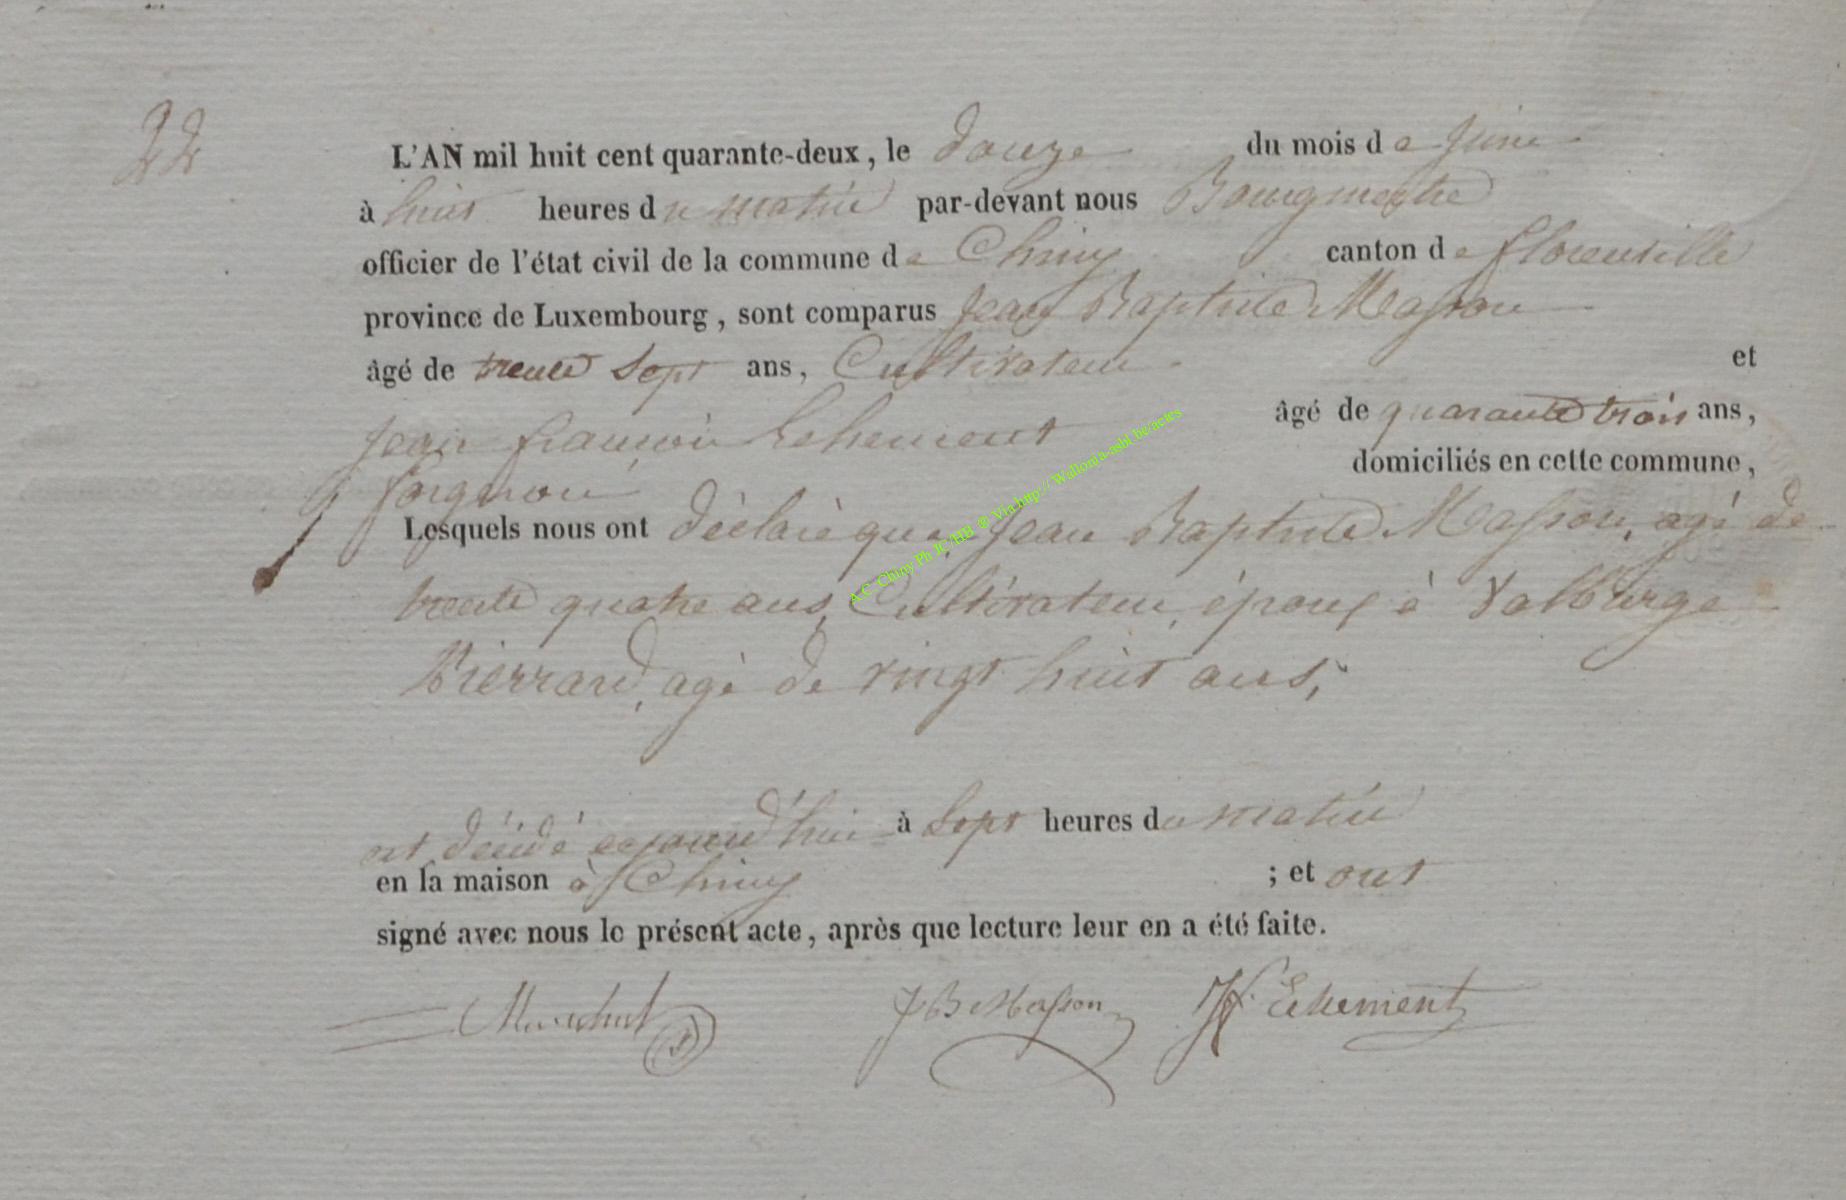 22
L'AN mil huit cent quarante-deux, le douze du mois de Juin
à huit heures du matin par-devant nous Bourgmestre
officier de l'état civil de la commune de Chiny canton de florenville
province de Luxembourg, sont comparus Jean Baptiste Masson
âgé de trente sept ans, Cultivateur et
Jean françois Echement âgé de quarante trois ans,
forgeron domiciliés en cette commune,
Lesquels nous ont déclaré que Jean Baptiste Masson, agé de
trente quatre ans, Cultivateur, époux à Valburge
Pierrard, agé de vingt huit ans,
est décédé aujourd'hui à Sept heures du matin
en la maison à Chiny ; et ont
signé avec nous le présent acte, après que lecture leur en a été faite.
JB Masson JF Echement
A.C Chiny Ph JC/HB @ Via http://Wallonia-asbl.be/actes